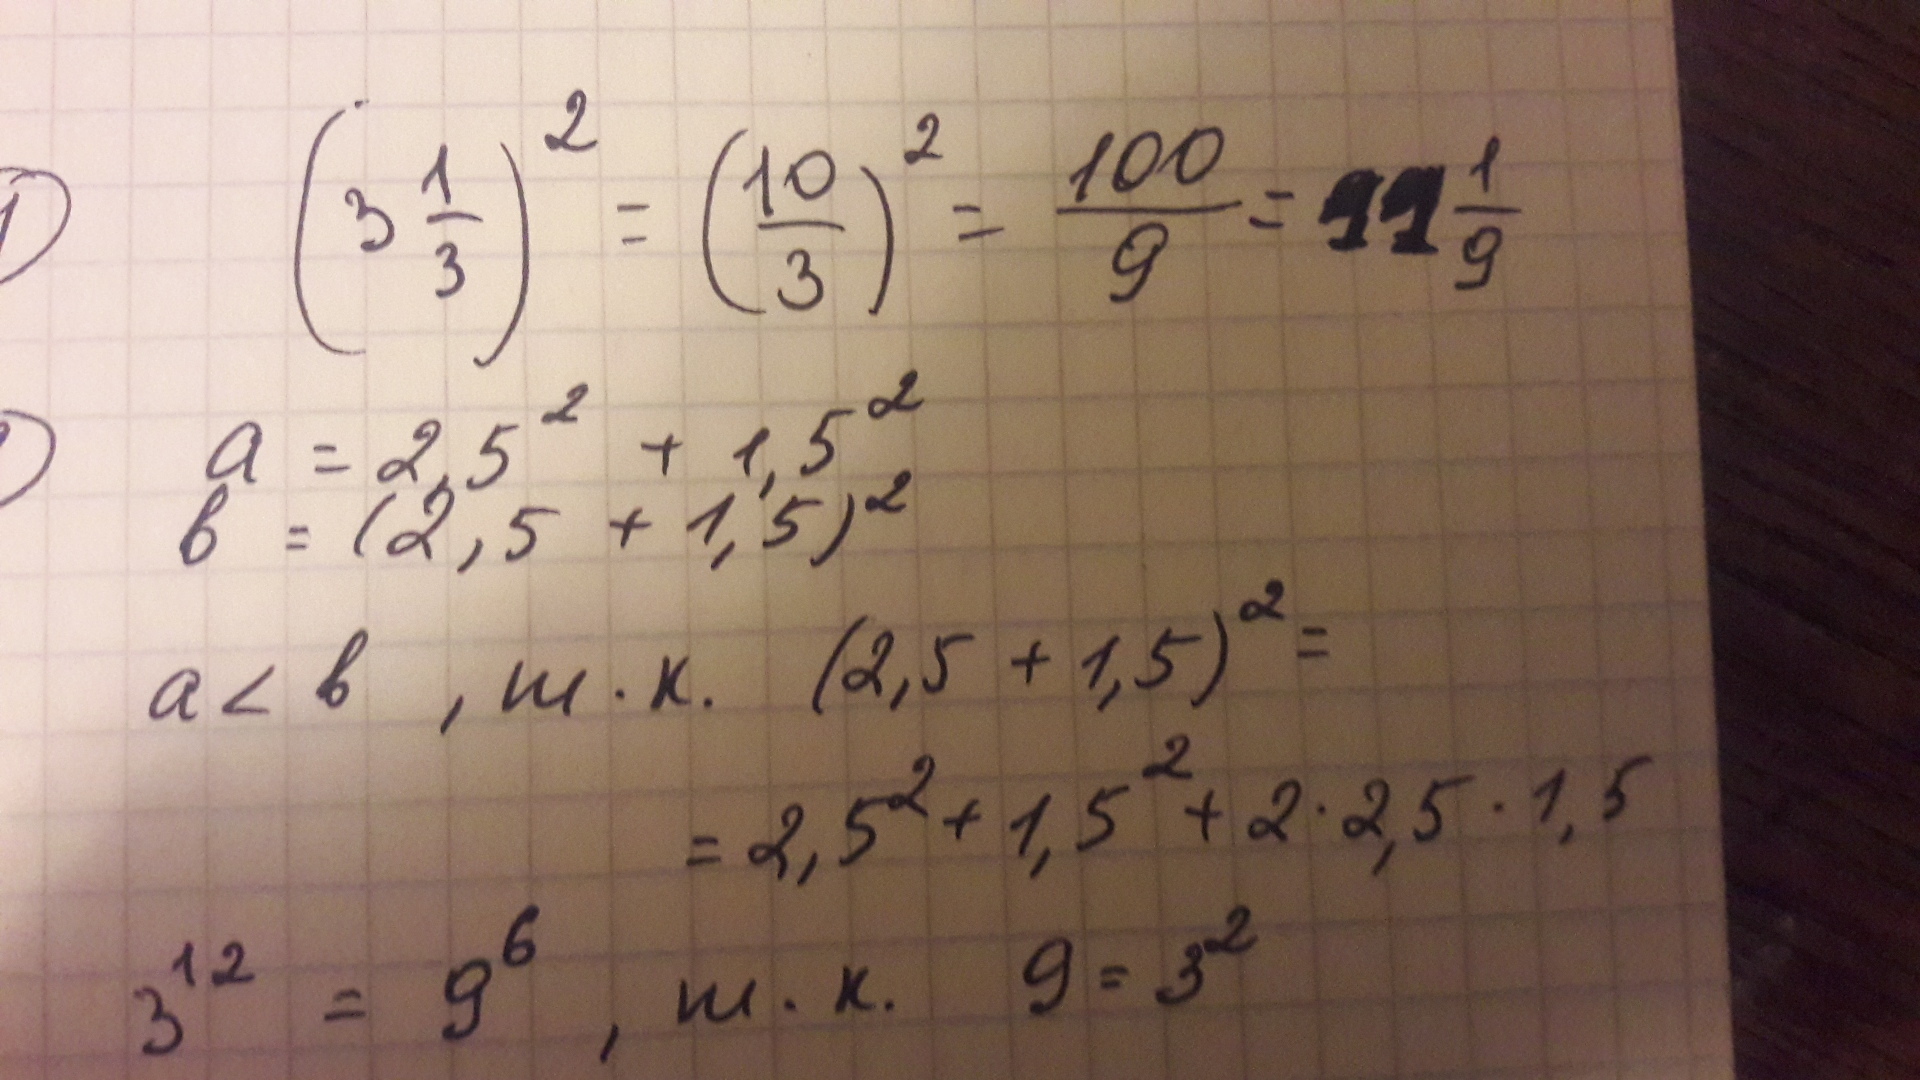 1) (3 1/3)² = (10/3)² = 100/9 = 11 1/9
a = 2,5² + 1,5²
в = (2,5 + 1,5)²
a < в , т.к. (2,5 + 1,5)² =
= 2,5² + 1,5² + 2·2,5·1,5
3¹² = 9⁶ , т.к. 9 = 3²